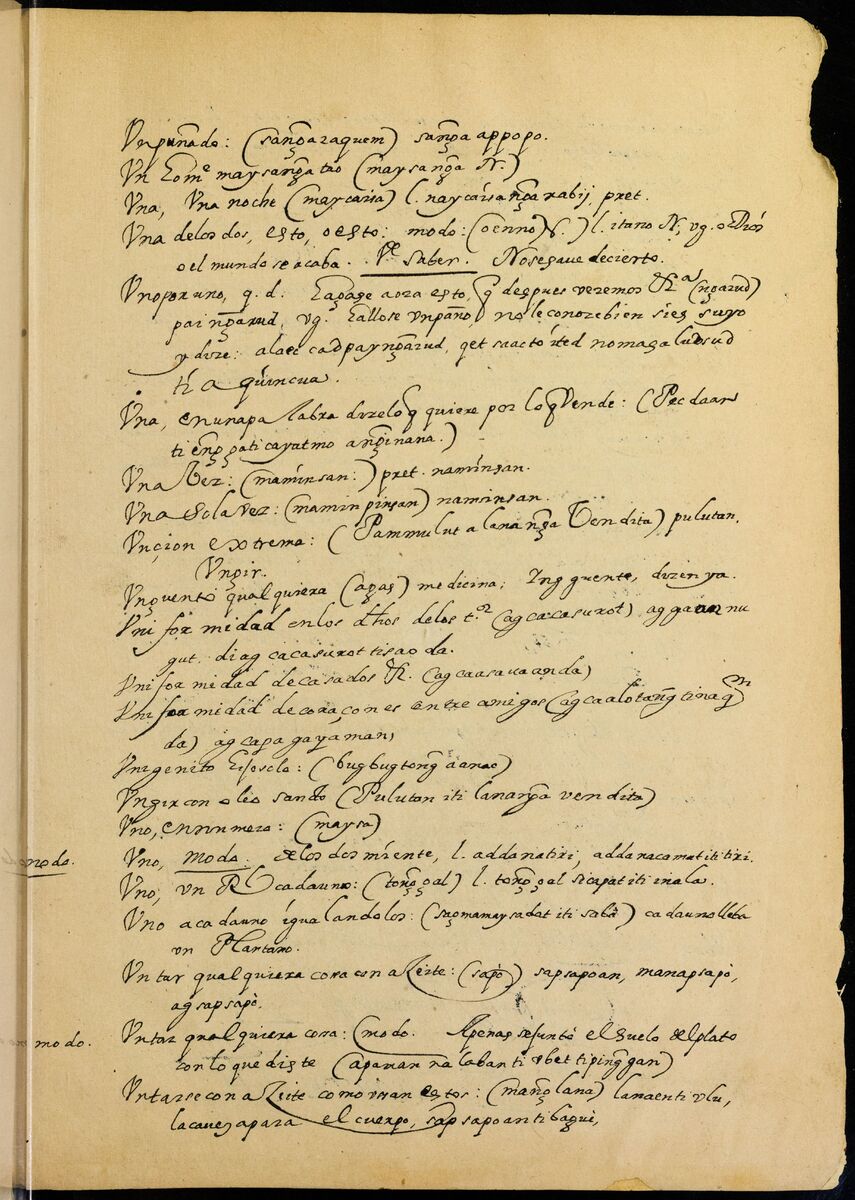 Vn puñado: (sangaraquem) sanga appopo.
Vn home maysanga tao (maysanga N.)
Vna, Vna noche (maycaisa) l. naycaisa nga rabij pret.
Vna delos dos, esto, o esto: modo: (oenno N.) l. itano N, vg. o Dios
o el mundo se acaba. Vt saber. No se save de cierto.
Vno por uno, q. d. hagase aora esto, q despues veremos
pai ngarud, vg. hallose vn paño, no le conoze bien si es suyo
y dize: alaec cad pay ngarud,
ti a quincua.
Vna, en una palabra dize lo q quiere por lo q Vende: (Pecdaan
ti
Vna Vez: (maminsan:) pret. naminsan.
Vna sola vez: (maminpinsan) naminsan.
Vnçion extrema: (Pammulut a lana nga Vendita) pulutan.
Vngir.
Vnguento qualquiera (agas) medicina; Ingguente, dizen ya.
Vniformidad en los dhos delos t.os (agcacasurot)
gut. di agcacasurot ti sao da.
Vniformidad de casados (agcaasaua anda)
Vniformidad de coraçones entre amigos
da) agcapagayaman,
Vnigenito hijo solo: (bugbugtong a anac)
Vngir con oleo santo (Pulutan iti lana nga vendita)
Vno, en numero: (maysa)
Vno, modo. delos dos miente, l. adda natiri, adda naca matiti tiri.
Vno, un Rl cada uno: (tonggal) l. tonggal sicapat iti inala.
Vno a cada uno igualandolos: (sagmamaysa dat iti saba) cada uno lleba
un Plantano.
Vntar qualquiera cosa con aZeite: (sapo) sapsapoan, manapsapò,
agsapsapò.
modo. Vntar qualquiera cosa: (modo. Apenas se untò el suelo del plato
con lo que diste (apaman na laban ti ti pinggan)
Vntarse con aZeite como usan estos: (manglana) lanaen ti vlu,
la caveza para el cuerpo, sapsapoan ti bagui,